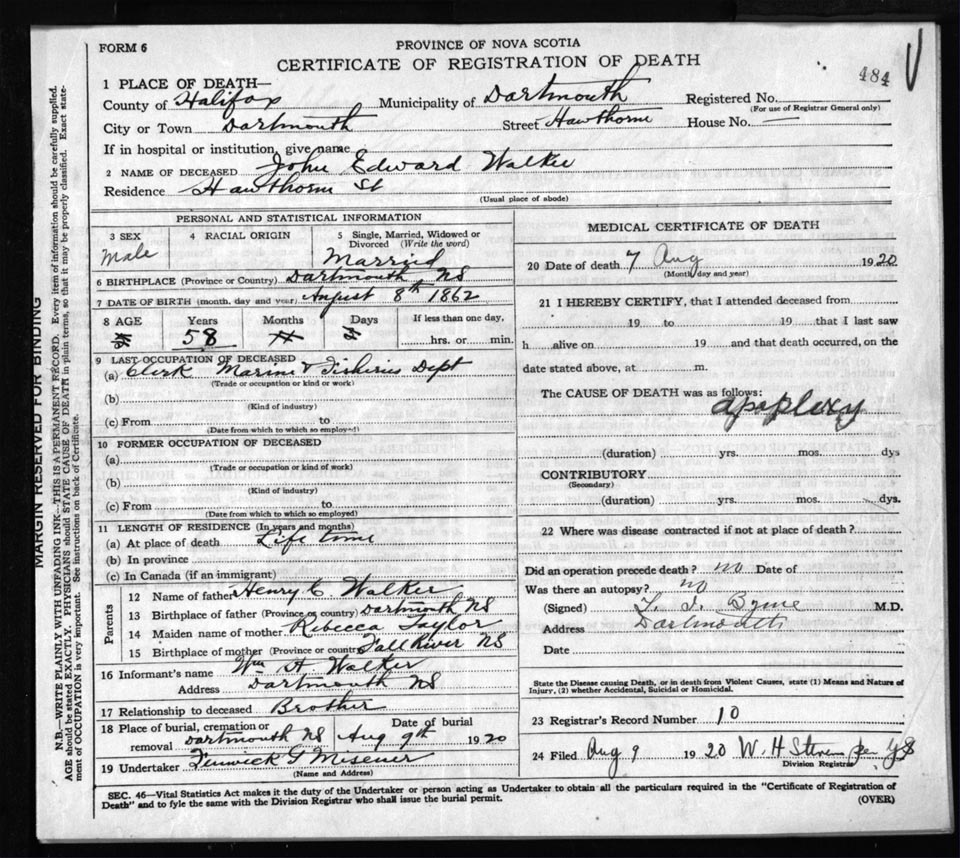 FORM 6
PROVINCE OF NOVA SCOTIA
CERTIFICATE OF REGISTRATION OF DEATH
484
1 PLACE OF DEATH—
County of Halifax Municipality of Dartmouth Registered No.
(For use of Registrar General only)
City or Town Dartmouth Street Hawthorne House No. —
If in hospital or institution, give name
2 NAME OF DECEASED John Edward Walker
Residence Hawthorne St
(Usual place of abode)
PERSONAL AND STATISTICAL INFORMATION
3 SEX 4 RACIAL ORIGIN 5 Single, Married, Widowed or Divorced (Write the word)
Male Married
6 BIRTHPLACE (Province or Country) Dartmouth NS
7 DATE OF BIRTH (month, day and year) August 8th 1862
8 AGE Years Months Days If less than one day,
58 hrs. or min.
9 LAST OCCUPATION OF DECEASED
(a) Clerk Marine & Fisheries Dept
(Trade or occupation or kind or work)
(b)
(Kind of industry)
(c) From to
(Date from which to which so employed)
10 FORMER OCCUPATION OF DECEASED
(a)
(Trade or occupation or kind of work)
(b)
(Kind of industry)
(c) From to
(Date from which to which so employed)
11 LENGTH OF RESIDENCE (In years and months)
(a) At place of death Life time
(b) In province
(c) In Canada (if an immigrant)
Parents
12 Name of father Henry C. Walker
13 Birthplace of father (Province or country) Dartmouth NS
14 Maiden name of mother Rebecca Taylor
15 Birthplace of mother (Province or country) Fall River NS
16 Informant's name Wm H. Walker
Address Dartmouth NS
17 Relationship to deceased Brother
18 Place of burial, cremation or removal Dartmouth NS Date of burial Aug 9th 1920
19 Undertaker Fenwick G Misener
(Name and Address)
MEDICAL CERTIFICATE OF DEATH
20 Date of death 7 Aug 1920
(Month, day and year)
21 I HEREBY CERTIFY, that I attended deceased from
19 to 19 that I last saw
h alive on 19 and that death occurred, on the
date stated above, at m.
The CAUSE OF DEATH was as follows:
apoplexy
(duration) yrs. mos. dys
CONTRIBUTORY
(Secondary)
(duration) yrs. mos. dys.
22 Where was disease contracted if not at place of death?
Did an operation precede death? no Date of
Was there an autopsy? no
(Signed) Byrne M.D.
Address Dartmouth
Date
State the Disease causing Death, or in death from Violent Causes, state (1) Means and Nature of
Injury, (2) whether Accidental, Suicidal or Homicidal.
23 Registrar's Record Number 10
24 Filed Aug 9 1920 W. H Stevens per
Division Registrar
SEC. 46—Vital Statistics Act makes it the duty of the Undertaker or person acting as Undertaker to obtain all the particulars required in the "Certificate of Registration of
Death" and to fyle the same with the Division Registrar who shall issue the burial permit.
(OVER)
MARGIN RESERVED FOR BINDING
N.B.—WRITE PLAINLY WITH UNFADING INK—THIS IS A PERMANENT RECORD. Every item of information should be carefully supplied.
AGE should be stated EXACTLY. PHYSICIANS should STATE CAUSE OF DEATH in plain terms, so that it may be properly classified. Exact state-
ment of OCCUPATION is very important. See instructions on back of Certificate.